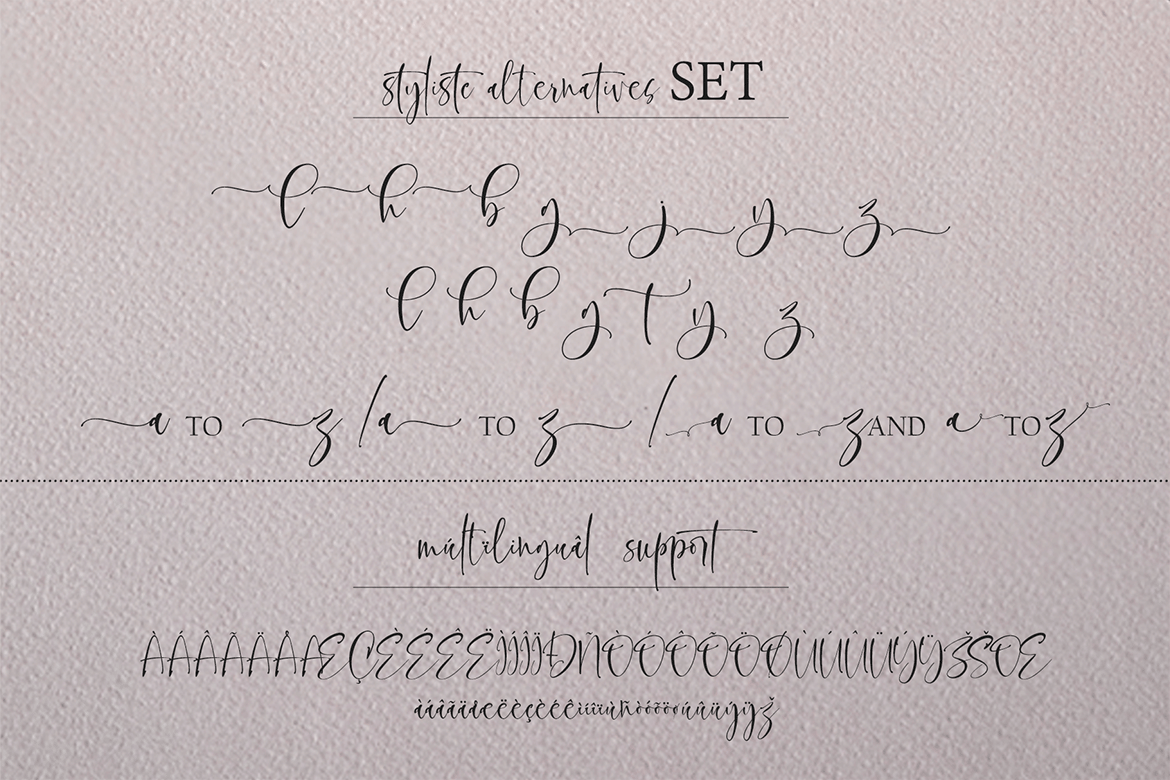 styliste alternatives SET
l h b g j y z
l h b g t y z
a TO z / a TO z / a TO z AND a TO z
múltïlinguâl support
ÀÁÂÃÄÅÆÇÈÉÊËÌÍÎÏÐÑÒÓÔÕÖØÙÚÛÜÝŸŽŠŒ